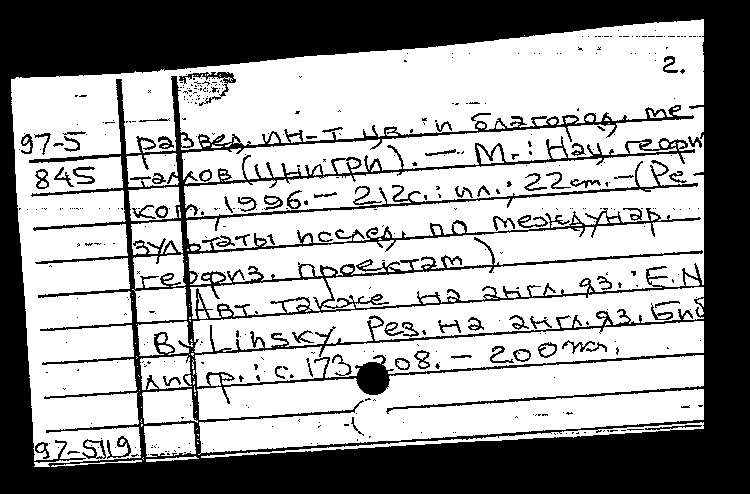 2.
97-5 развед. ин-т цв. и благород. ме-
845 таллов (ЦНИГРИ). — М.: Нац. геофиз.
ком., 1996. — 212с.: ил.; 22 см. — (Ре-
зультаты исслед. по междунар.
геофиз. проектам)
Авт. также на англ. яз.: E.N
Bylinsky. Рез. на англ. яз. Биб
лиогр.: с. 173-208. — 200 экз.
97-5119